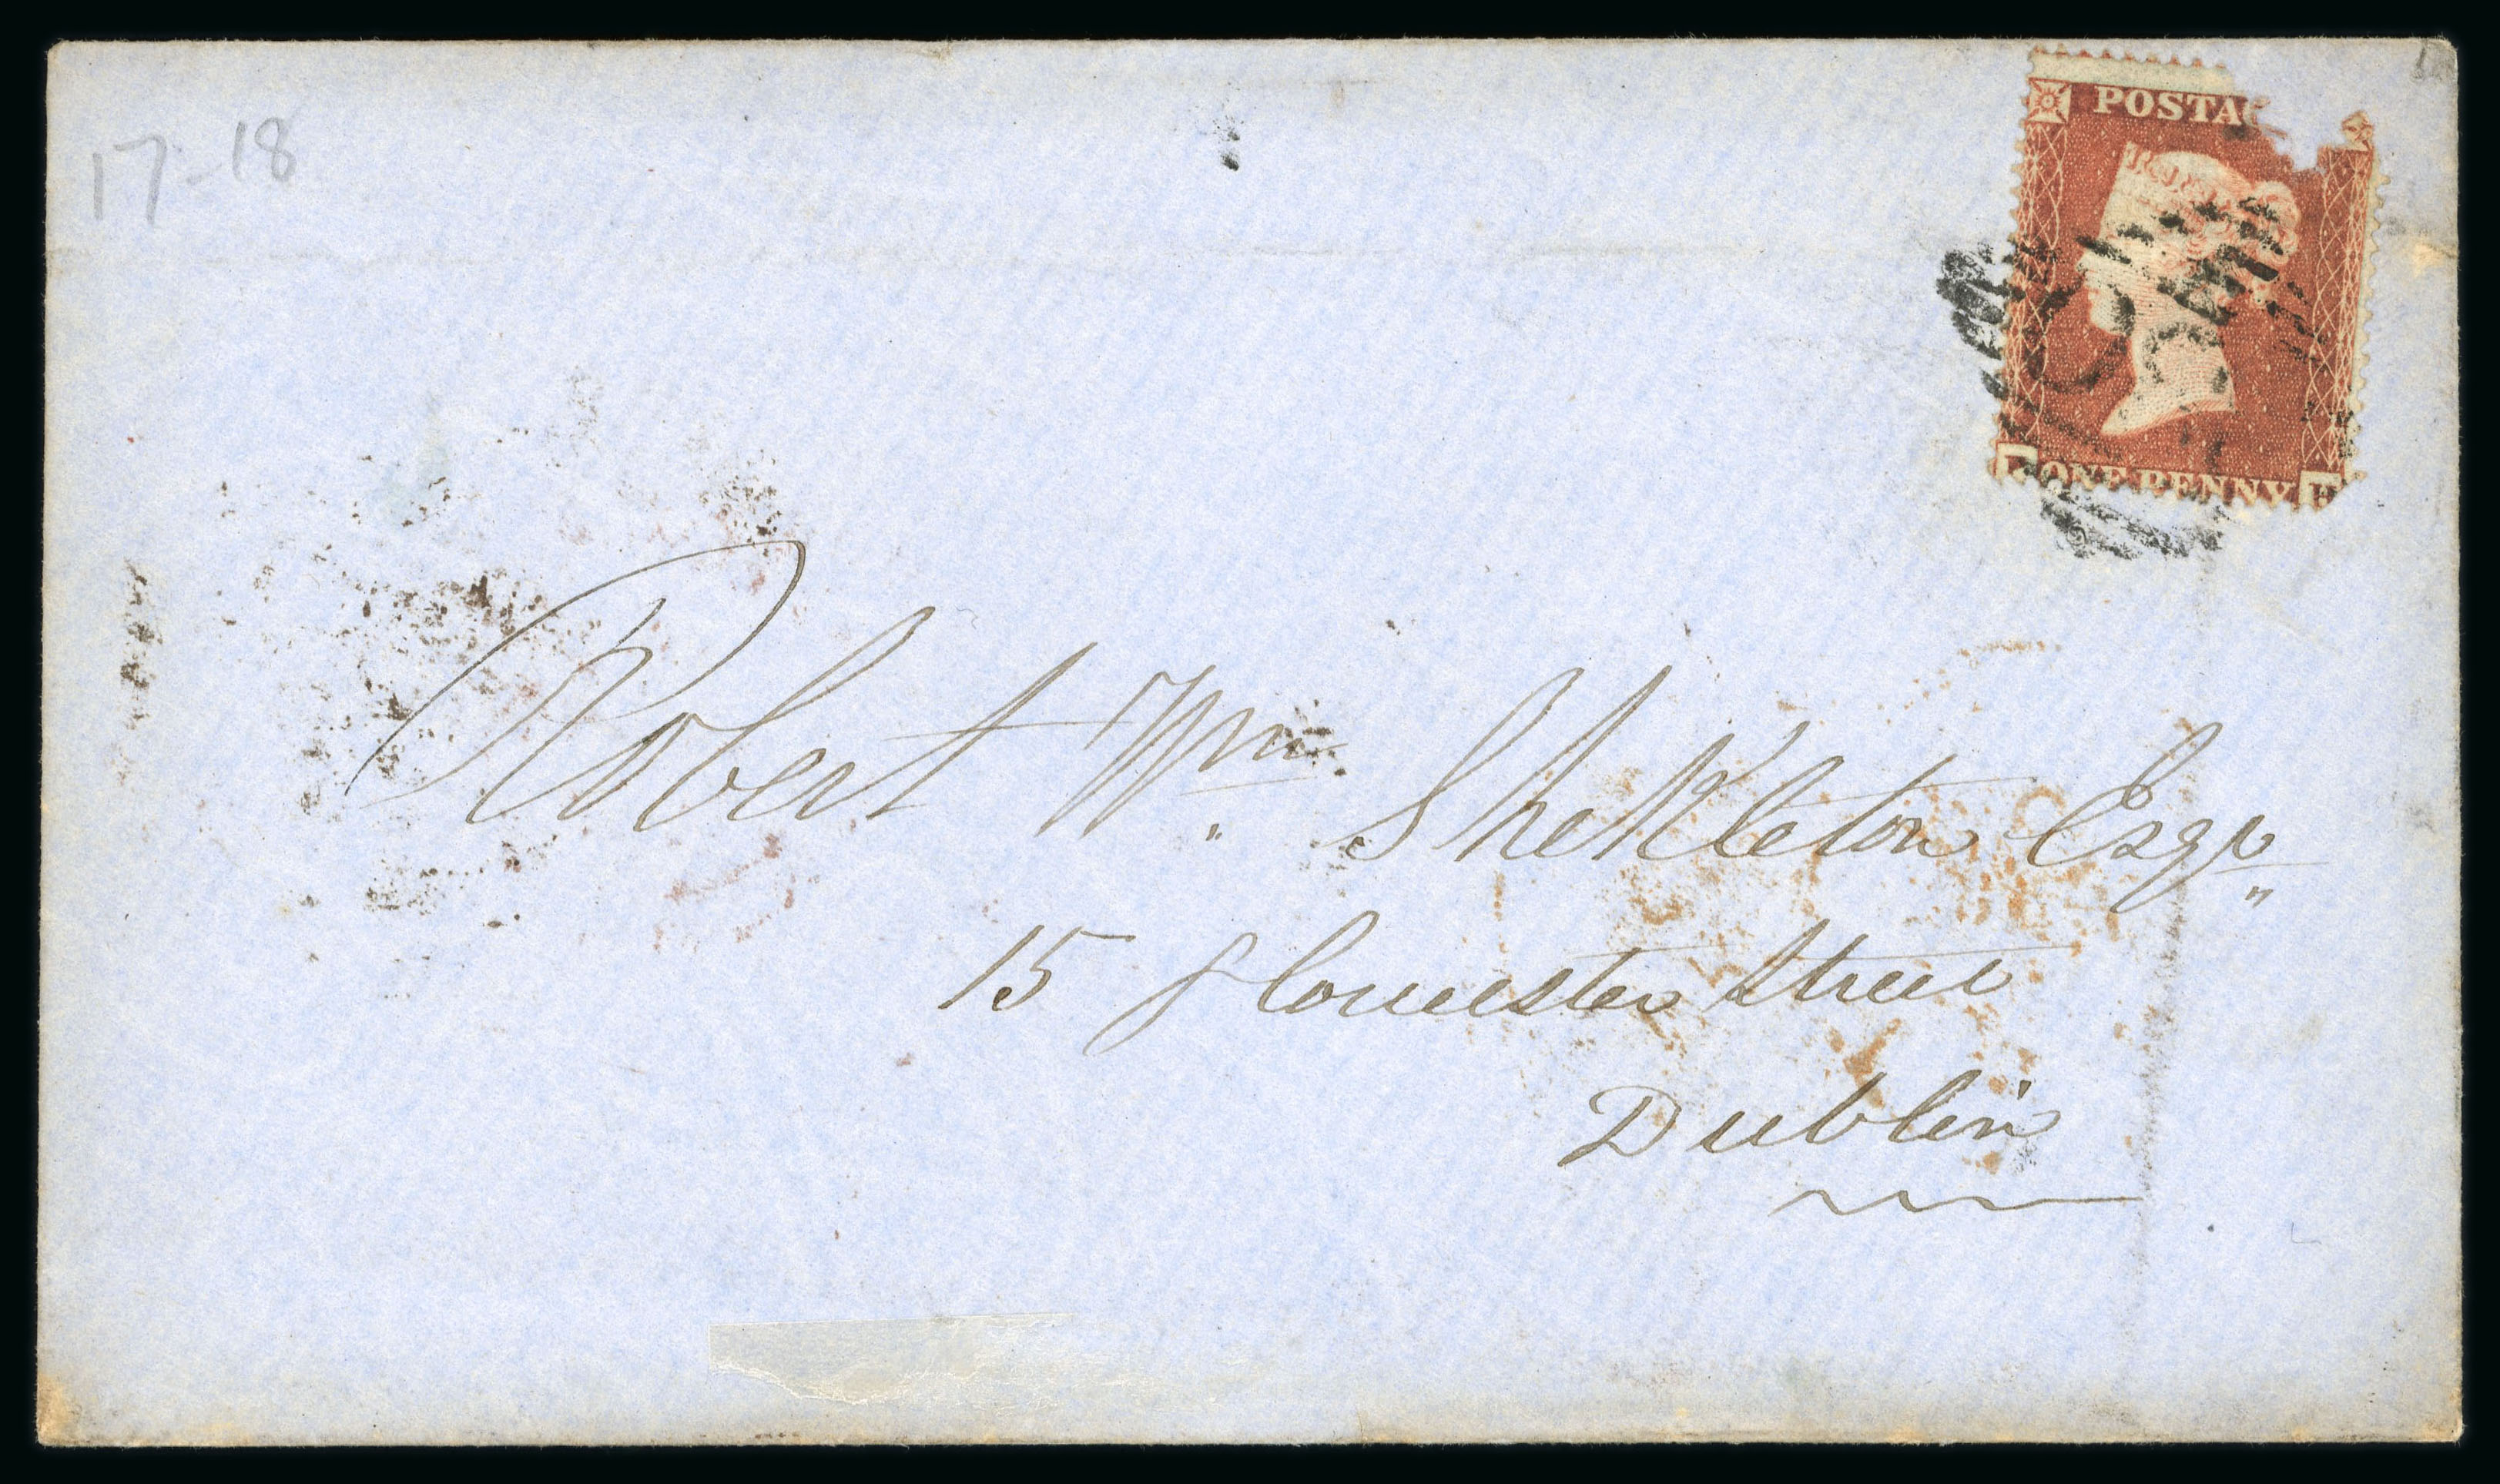 17-18
POSTAG
ONE PENNY
Robert Wm. Shekleton Esqr.
15 Gloucester Street
Dublin